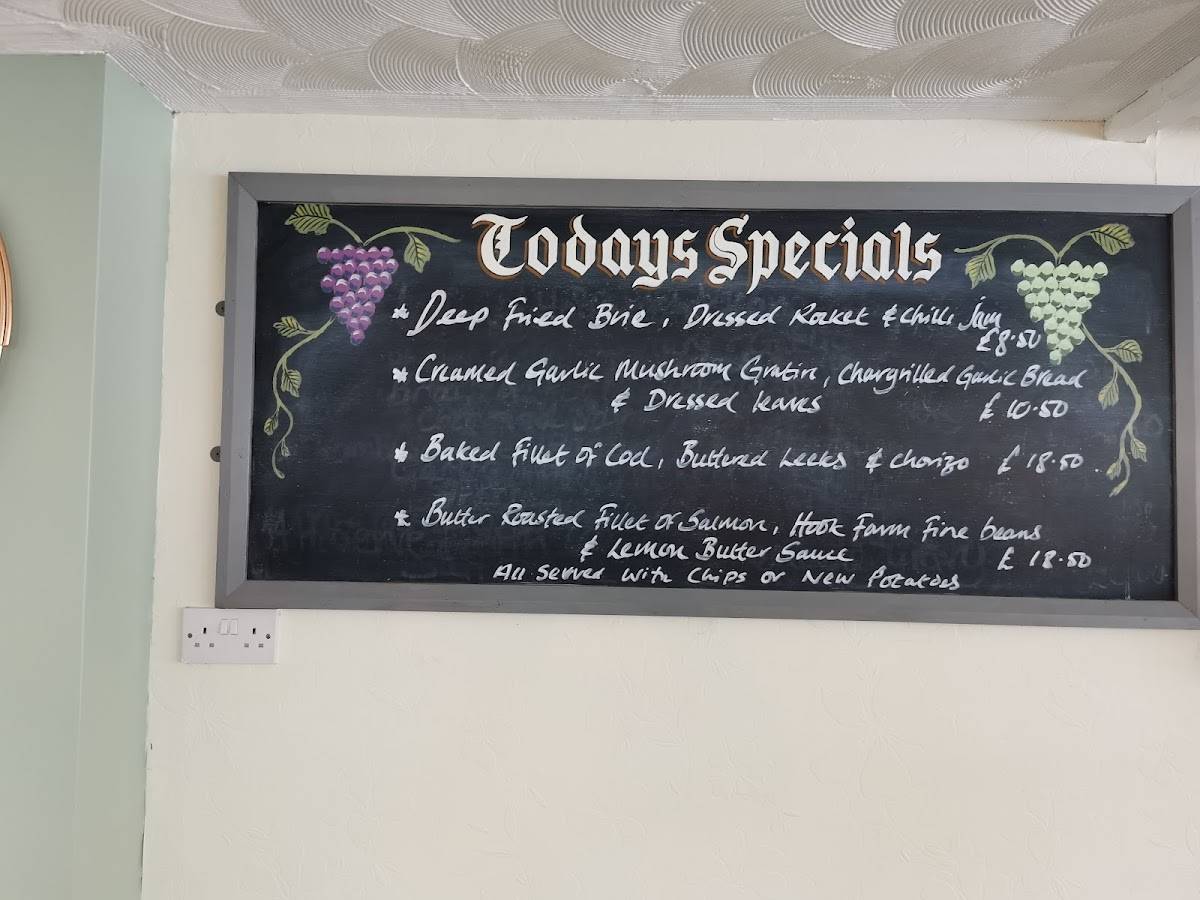 Todays Specials
* Deep Fried Brie, Dressed Rocket & Chilli Jam
£8.50
* Creamed Garlic Mushroom Gratin, Chargrilled Garlic Bread
& Dressed leaves £10.50
* Baked Fillet of Cod, Buttered Leeks & Chorizo £18.50
* Butter Roasted Fillet of Salmon, Hook Farm Fine beans
& Lemon Butter Sauce £18.50
All Served With Chips or New Potatoes